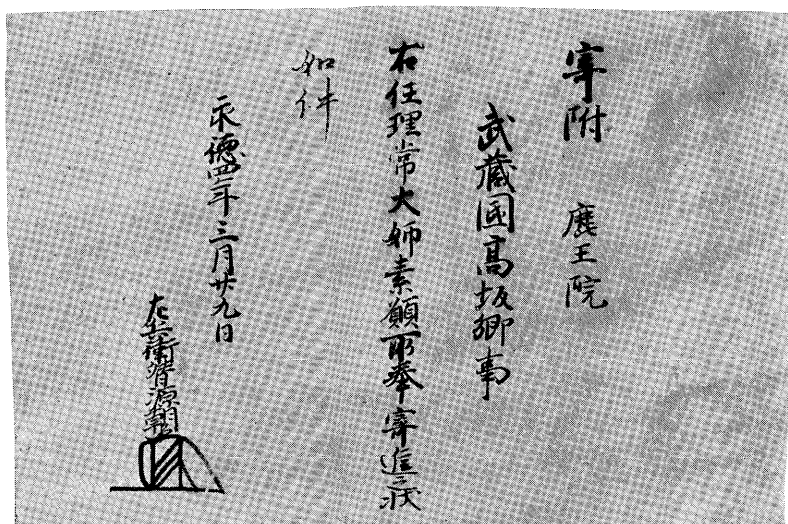 寄附 鹿王院
武藏國高坂郷事
右任理常大師素願所奉寄進之状
如件
永德四年三月廿九日
左兵衛督源朝臣